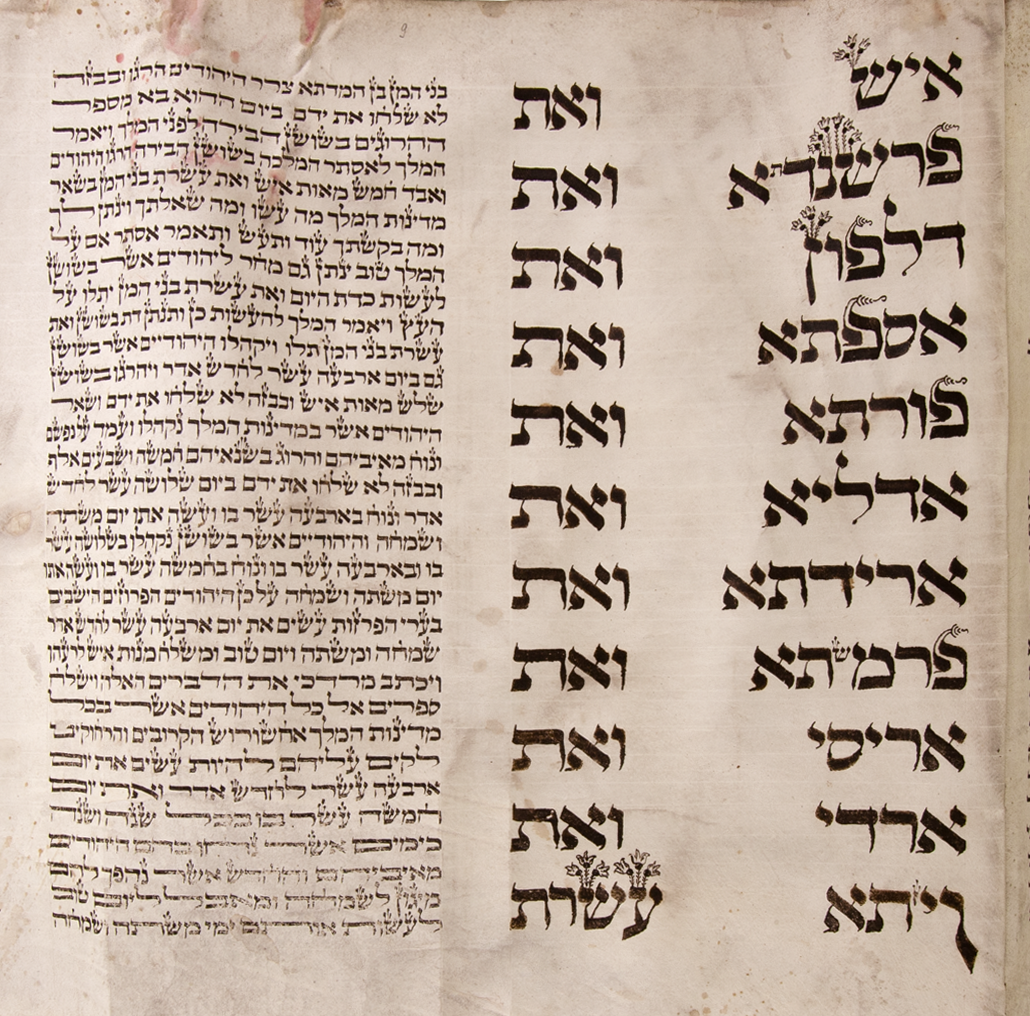 איש ואת
פרשנדתא ואת
דלפון ואת
אספתא ואת
פורתא ואת
אדליא ואת
ארידתא ואת
פרמשתא ואת
אריסי ואת
ארדי ואת
ויזתא עשרת
בני המן בן המדתא צרר היהודים הרגו ובבזה
לא שלחו את ידם ביום ההוא בא מספר
ההרוגים בשושן הבירה לפני המלך ויאמר
המלך לאסתר המלכה בשושן הבירה הרגו היהודים
ואבד חמש מאות איש ואת עשרת בני המן בשאר
מדינות המלך מה עשו ומה שאלתך וינתן לך
ומה בקשתך עוד ותעש ותאמר אסתר אם על
המלך טוב ינתן גם מחר ליהודים אשר בשושן
לעשות כדת היום ואת עשרת בני המן יתלו על
העץ ויאמר המלך להעשות כן ותנתן דת בשושן ואת
עשרת בני המן תלו ויקהלו היהודיים אשר בשושן
גם ביום ארבעה עשר לחדש אדר ויהרגו בשושן
שלש מאות איש ובבזה לא שלחו את ידם ושאר
היהודים אשר במדינות המלך נקהלו ועמד על נפשם
ונוח מאיביהם והרוג בשנאיהם חמשה ושבעים אלף
ובבזה לא שלחו את ידם ביום שלושה עשר לחדש
אדר ונוח בארבעה עשר בו ועשה אתו יום משתה
ושמחה והיהודיים אשר בשושן נקהלו בשלושה עשר
בו ובארבעה עשר בו ונוח בחמשה עשר בו ועשה אתו
יום משתה ושמחה על כן היהודים הפרוזים הישבים
בערי הפרזות עשים את יום ארבעה עשר לחדש אדר
שמחה ומשתה ויום טוב ומשלח מנות איש לרעהו
ויכתב מרדכי את הדברים האלה וישלח
ספרים אל כל היהודים אשר בכל
מדינות המלך אחשורוש הקרובים והרחוקים
לקים עליהם להיות עשים את יום
ארבעה עשר לחדש אדר ואת יום
חמשה עשר בו בכל שנה ושנה
כימים אשר נחו בהם היהודים
מאיביהם והחדש אשר נהפך להם
מיגון לשמחה ומאבל ליום טוב
לעשות אותם ימי משתה ושמחה